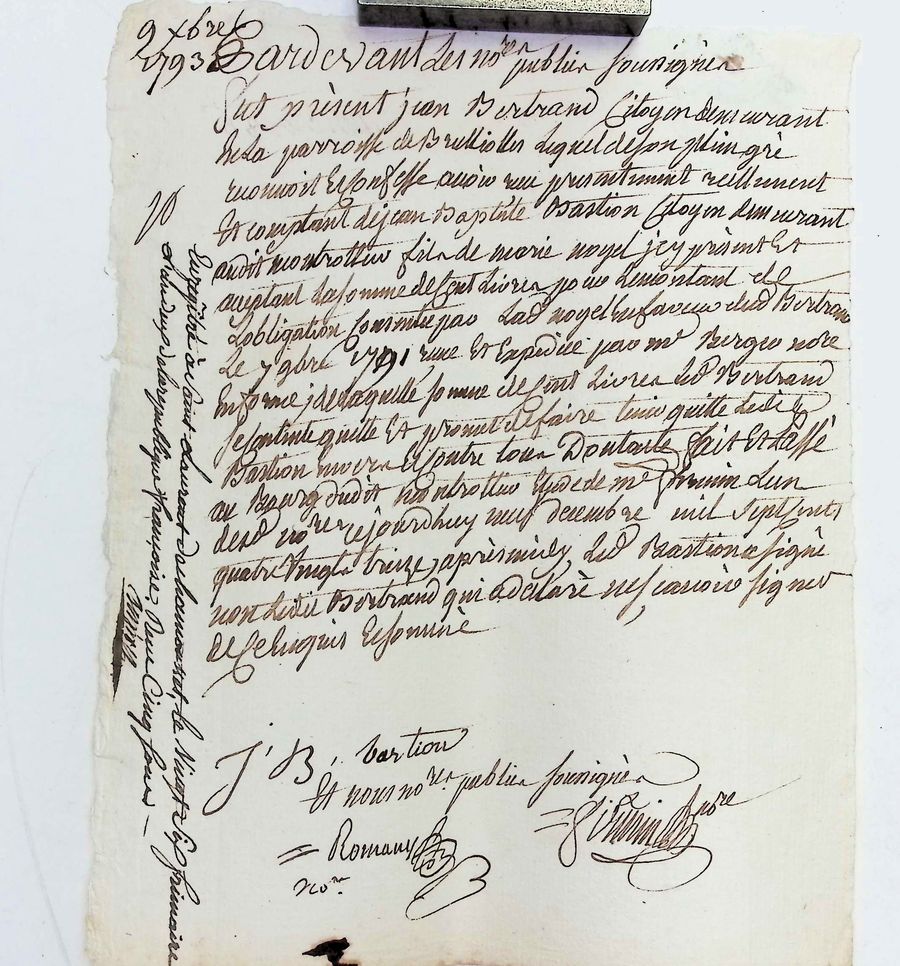 9 xbre
1793
Pardevant les nores publics soussignés
fut présent jean Bertrand Citoyen demeurant
de la parroisse de Brullioles lequel de son plein gré
reconnoit et confesse avoir reçu presentement reellement
et comptant de jean Baptiste Bastion Citoyen demeurant
audit montrottier fils de marie noyel jcy présent et
acceptant la somme de Cent Livres pour le montant de
L'obligation Consentie par Lad noyel en faveur dud Bertrand
Le 7 9bre 1791 reçue et Expédiée par me Berger nore
en forme, de laquelle somme de Cent Livres led Bertrand
se contente quitte et promet de faire tenir quitte ledit
Bastion envers et contre tous Dont acte fait et Passé
au Bourg dudit montrottier Etude de me l'un
desd nores cejourdhuy neuf decembre mil sept Cents
quatre vingts treize, après midy, Led Bastion a signé
non ledit Bertrand qui a declaré ne scavoir signer
de ce Enquis et sommé
J. B. bastion
Et nous nores publics soussignés
nore
Romany
nore
Enregistré à saint Laurent de chamousset, le vingt frimaire
an deux de la republique française, Reçu Cinq sous —